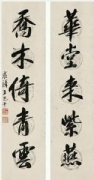 華堂來紫燕
喬木倚青雲